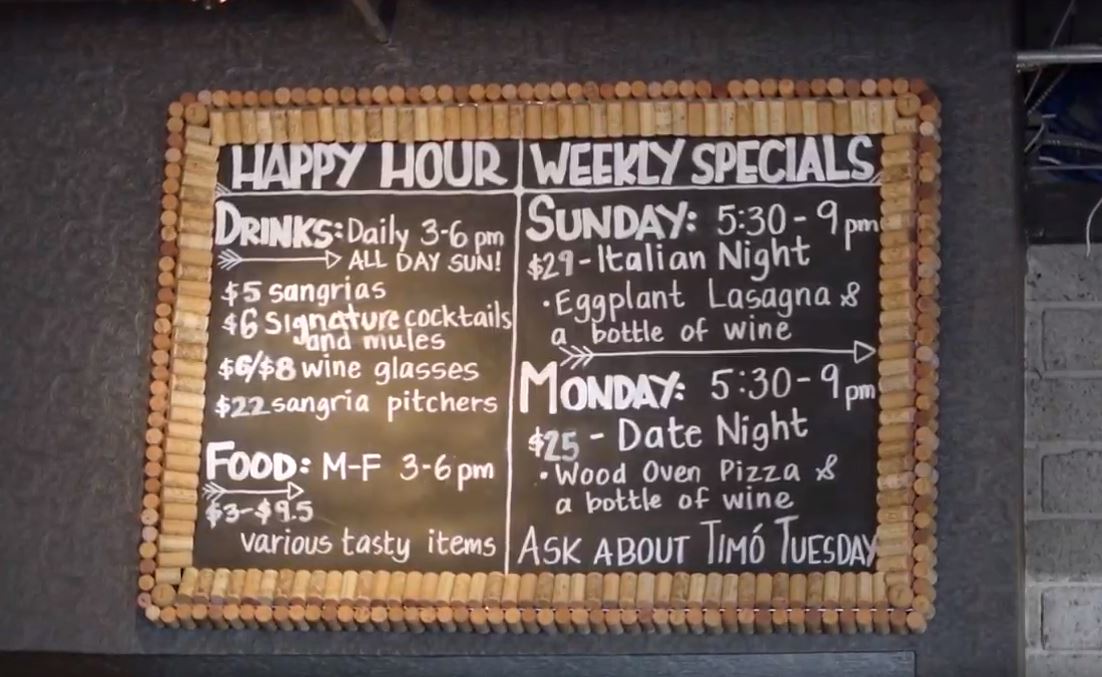 HAPPY HOUR
DRINKS: Daily 3-6 pm
ALL DAY SUN!
$5 sangrias
$6 Signature cocktails
and mules
$6/$8 wine glasses
$22 sangria pitchers
FOOD: M-F 3-6 pm
$3-$9.5
various tasty items
WEEKLY SPECIALS
SUNDAY: 5:30 - 9 pm
$29 - Italian Night
• Eggplant Lasagna &
a bottle of wine
MONDAY: 5:30 - 9 pm
$25 - Date Night
• Wood Oven Pizza &
a bottle of wine
ASK ABOUT TIMÓ TUESDAY